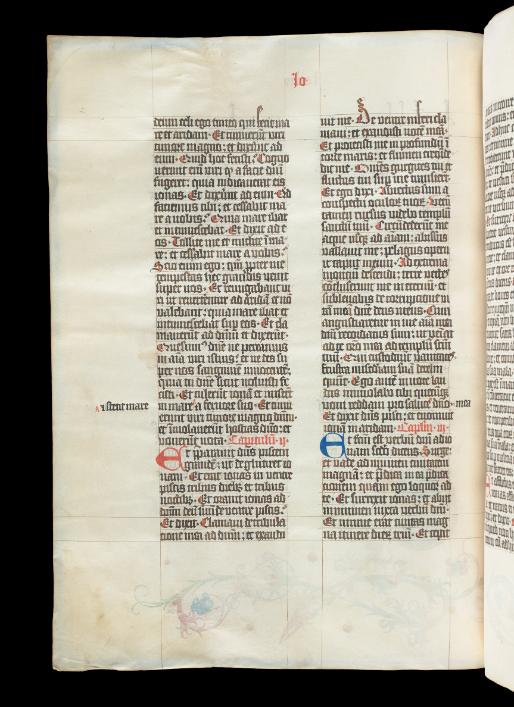 Io
deum celi ego timeo qui fecit ma
re et aridam. Et timuerūt viri
timore magno: et dixerūt ad
eum. Quid hoc fecisti? Cogno
verunt enī viri ꝙ a facie dn̄i
fugeret: quia indicaverat eis
ionas. Et dixerūt ad eum. Qͥd
faciemus tibi: et cessabit ma
re a nobis? Quia mare ibat
et intumescebat. Et dixit ad e
os. Tollite me et mittite ī ma
re: et cessabit mare a vobis.
Scio enim ego: qm̄ ꝓpter me
tempestas hec grādis venit
super vos. Et remigabant vi
ri ut reverterent̄ ad aridā et nō
valebant: quia mare ibat et
intumescebat suꝑ eos. Et cla
maverūt ad dn̄m et dixerūt.
Quesum᷒ dn̄e ne pereamus
in aīa viri istius: et ne des su
per nos sanguinē innocentē:
quia tu dn̄e sicut voluisti fe
cisti. Et tulerūt ionā et miserūt
in mare: a fervore suo. Et timue
runt viri timore magno dn̄m:
et immolaverūt hostias dn̄o: et
voverunt vota. Capitulū ·ij·
aı stetit mare
Et p̄paravit dn̄s piscem
grandē: ut deglutiret io
nam. Et erat ionas in ventre
piscis tribus dieb᷒ et tribus
noctib᷒. Et oravit ionas ad
dn̄m deū suū de ventre piscis.
Et dixit. Clamavi de tribula
tione mea ad dn̄m: et exaudi
vit me. De ventre inferi cla
mavi: et exaudisti vocē meā.
Et proiecisti me in profundū ī
corde maris: et flumen circūde
dit me. Om̄es gurgites tui et
fluctus tui suꝑ me trāsierūt.
Et ego dixi. Abiectus sum a
conspectu oculoꝝ tuoꝝ: verū
tamen rursus videbo templū
sanctū tuū. Circūdederūt me
aque usqꝫ ad aīam: abissus
vallavit me: pelagus oꝑu
it caput meum. Ad extrema
montiū descendi: terre vectes
cōcluserunt me in eternū: et
sublevabis de corruptione vi
tā meā dn̄e deus meus. Cum
angustiaretur in me aīa mea
dn̄i recordatus sum: ut veniat
ad te or̄o mea ad templū sanctū
tuū. Qui custodiunt vanitates
frustra mīam suam derelin
quūt. Ego autē in voce lau
dis immolabo tibi quecūqꝫ
vovi reddam pro salute dn̄o. mea
Et dixit dn̄s pisci: et evomuit
ionam in aridam. Caplm̄ ·iij·
Et factū est verbū dn̄i ad io
nam secūdo dicens. Surge:
et vade ad niniven civitatem
magnā: et p̄dica in ea p̄dica
tionem quam ego loquor ad
te. Et surrexit ionas: et abijt
in niniven iuxta verbū dn̄i.
Et ninive erat civitas mag
na itinere dieꝝ triū. Et cepit